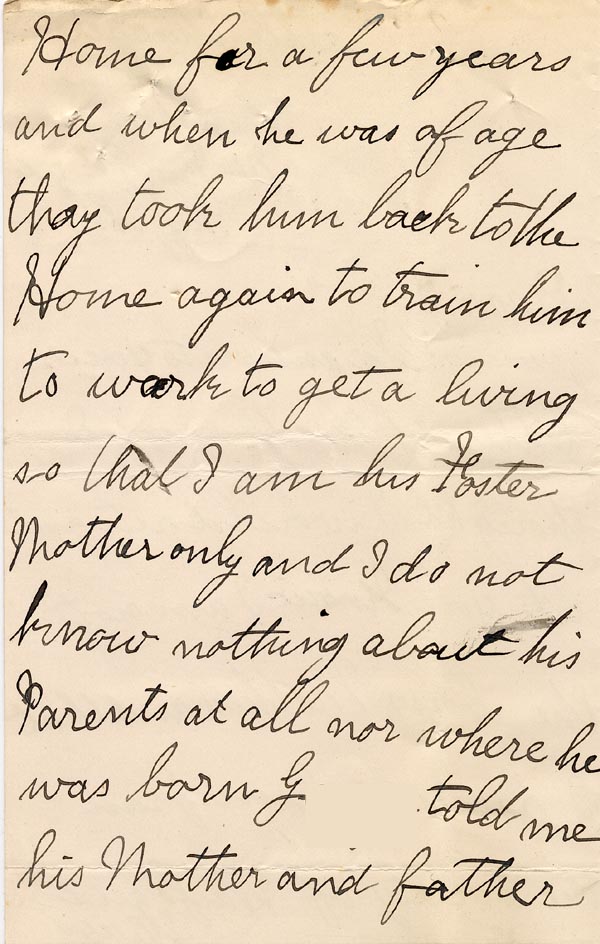 Home for a few years
and when he was of age
thay took him back to the
Home again to train him
to work to get a living
so that I am his Foster
Mother only and I do not
know nothing about his
Parents at all nor where he
was born G told me
his Mother and father